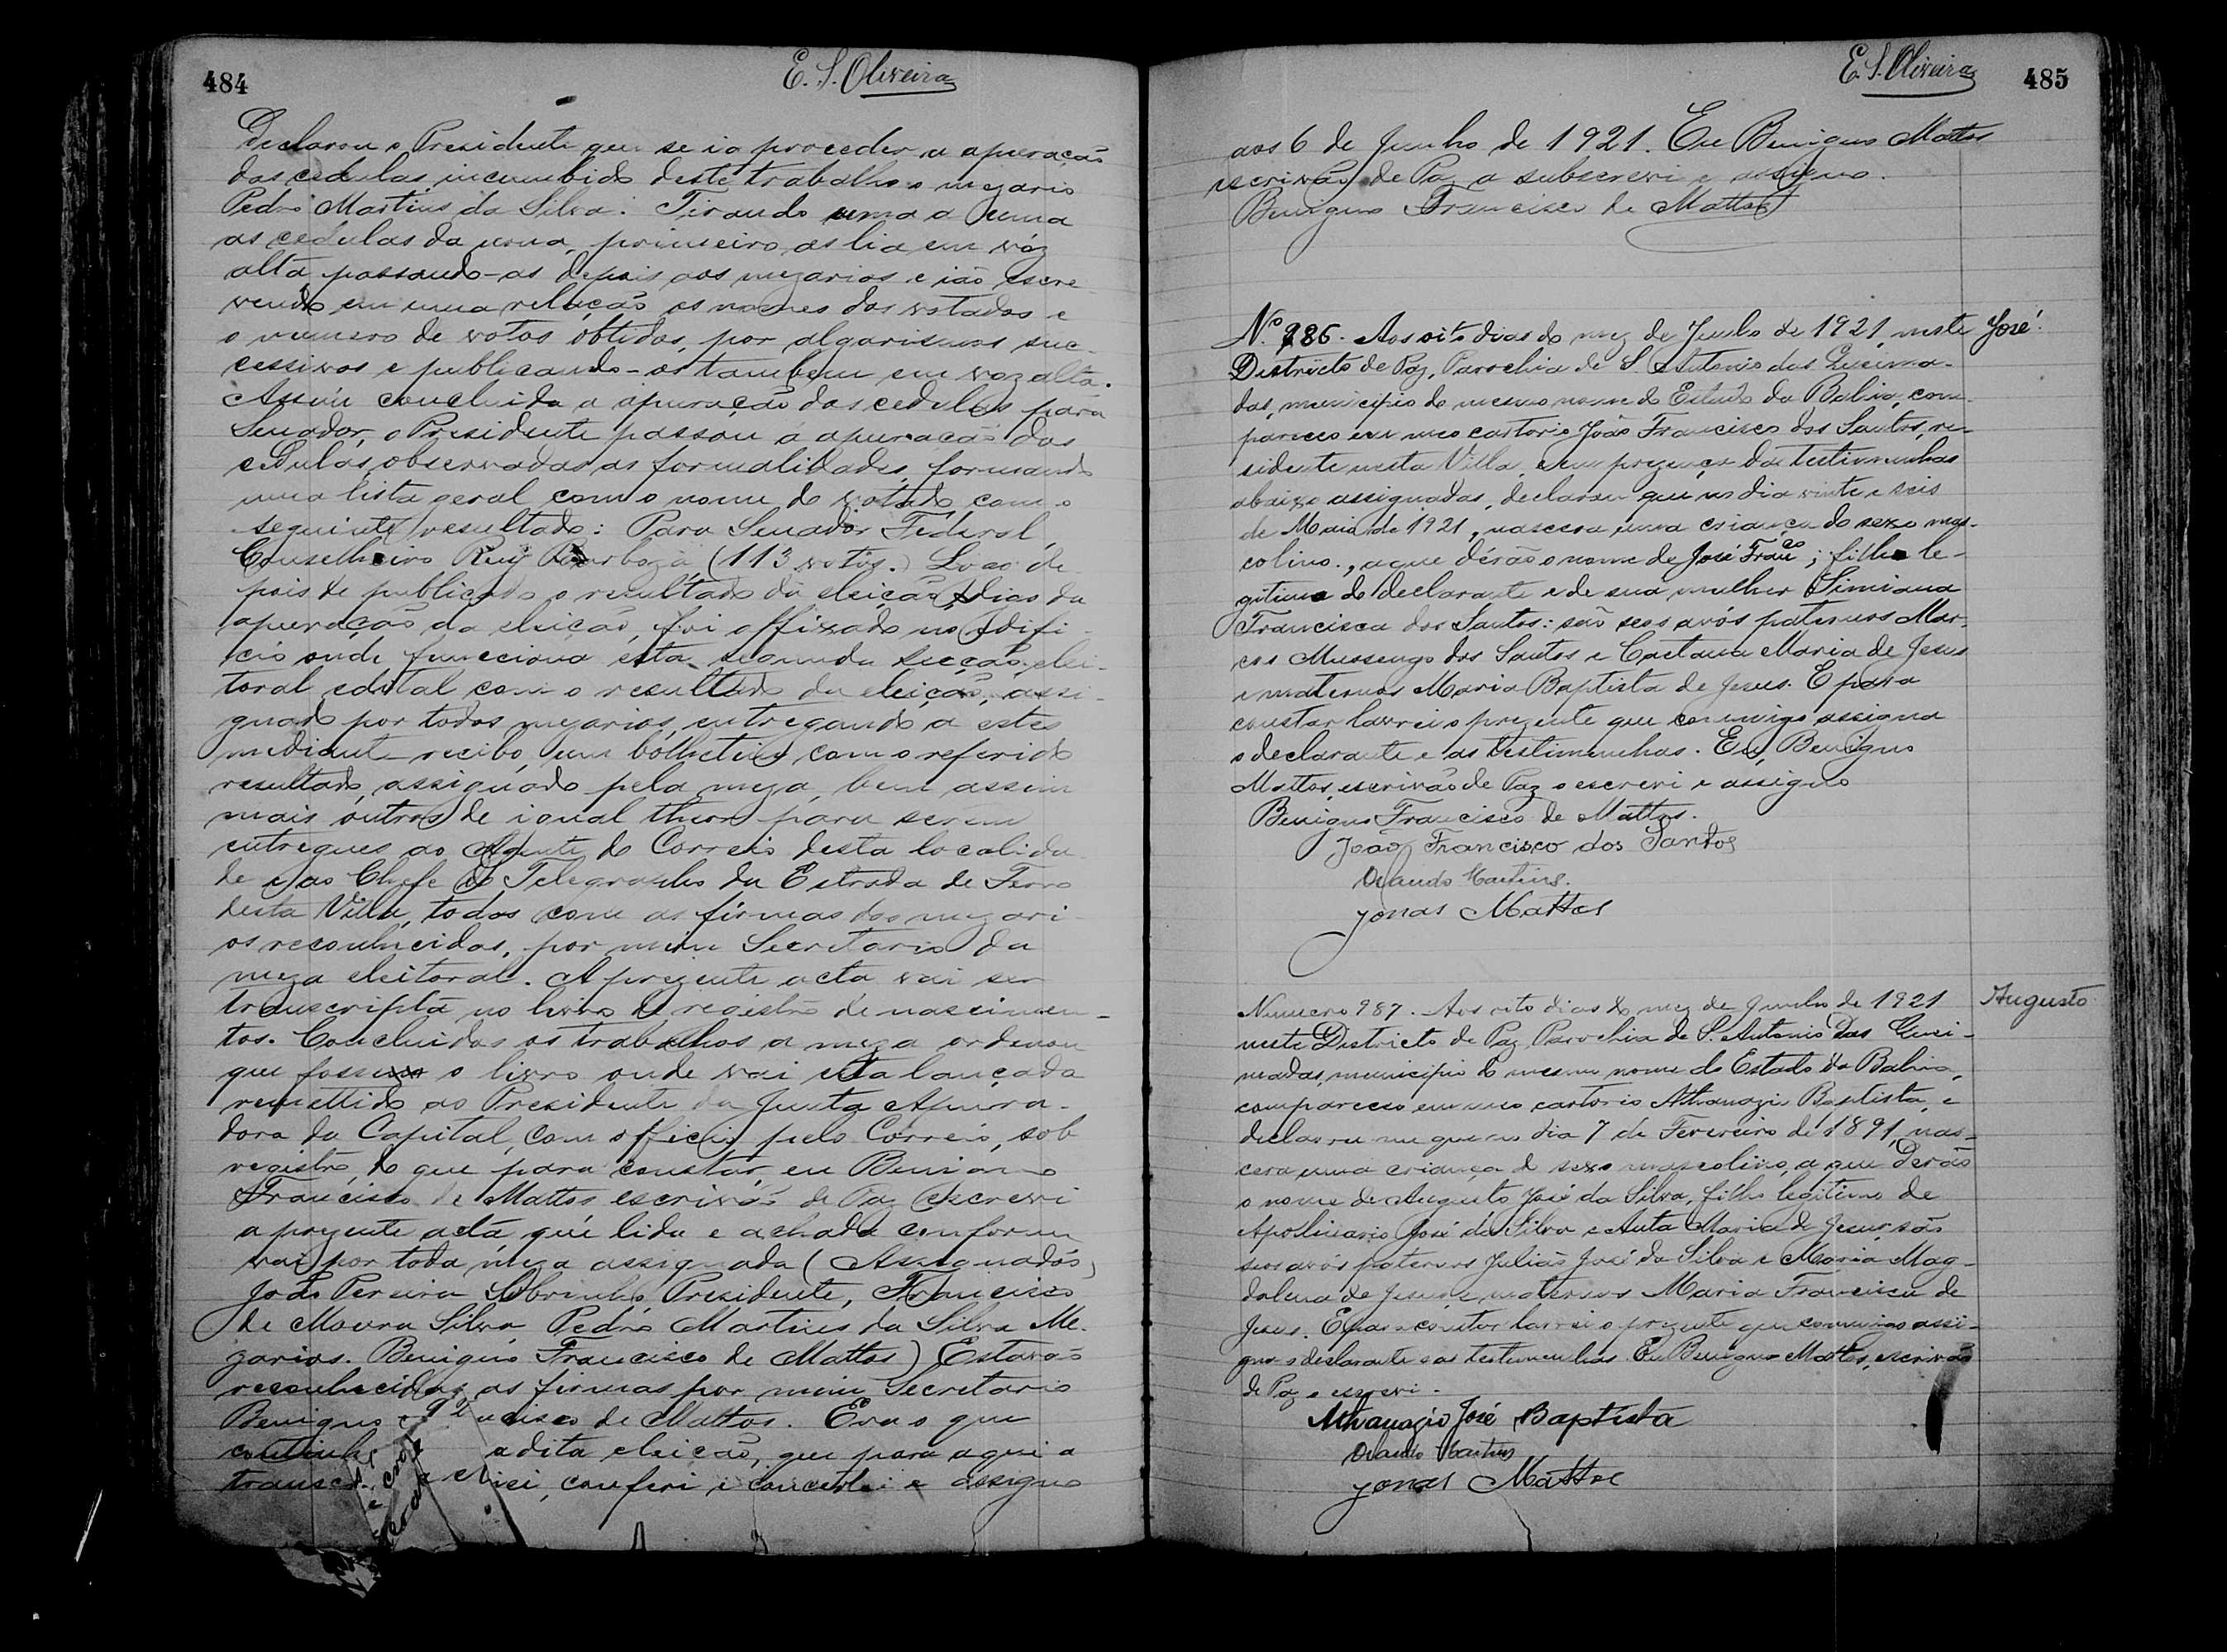 484
E. S. Oliveira
Declarou o Presidente que se ia proceder a apuração
das cedulas incumbido deste trabalho o mezario
Pedro Martins da Silva. Tirando uma a uma
as cedulas da urna, primeiro as lia em vóz
alta passando-as depois aos mezarios e ião escre
vendo em uma relação os nomes dos votados e
o numero de votos obtidos, por algarismos suc-
cessivos e publicando-os tambem em voz alta.
Assim concluida a apuração das cedulas para
Senador, o Presidente passou a apuração das
cedulas, observadas as formalidades, formando
uma lista geral com o nome do votado, com o
seguinte resultado: Para Senador Federal,
Conselheiro Ruy Barboza (113 votos.) Logo de
pois de publicado o resultado da eleição, digo da
apuração da eleição, foi affixado no edifi-
cio onde funcciona esta segunda secção elei-
toral edital com o resultado da eleição, assi-
gnado por todos mezarios, entregando a estes
mediante recibo, um bolhetim com o referido
resultado, assignado pela meza, bem assim
mais outros de igual theor para serem
entregues ao Agente do Correio desta localida
de e ao Chefe do Telegrapho da Estrada de Ferro
desta Villa, todos com as firmas dos mezari
os reconhecidas, por mim Secretario da
meza eleitoral. A prezente acta vai ser
transcripta no livro de registro de nascimen-
tos. Concluidos os trabalhos a meza ordenou
que fosse o livro onde vai esta lançada
remettido ao Presidente da Junta Apura-
dora da Capital, com officio pelo Correio, sob
registro, do que para constar, eu Benigno
Francisco de Mattos escrivão de Paz escrevi
a prezente acta que lida e achada conforme
vai por toda meza assignada (Assignados)
João Pereira Sobrinho, Presidente, Francisco
de Moura Silva, Pedro Martins da Silva Me-
zarios. Benigno Francisco de Mattos) Estavão
reconhecidas as firmas por mim Secretario
Benigno de Mattos. Era o que
adita eleição, que para aqui a
conferi e concertei e assigno
E. S. Oliveira
485
aos 6 de Junho de 1921. Eu Benigno Mattos
escrivão de Paz a subscrevi e assigno.
Benigno Francisco de Mattos
José
Nº 986. Aos oito dias do mez de Junho de 1921, neste
Districto de Paz, Parochia de S. Antonio das Queima-
das, municipio do mesmo nome do Estado da Bahia, com-
pareceo em meo cartorio João Francisco dos Santos, re-
sidente nesta Villa, e em prezença das testimunhas
abaixo assignadas, declarou que no dia vinte e seis
de Maio de 1921, nascera uma criança do sexo mas-
colino, a que dérão o nome de José Franco; filho le-
gitimo do declarante e de sua mulher Simiana
Francisca dos Santos: são seos avós paternos Mar-
cos Mussengo dos Santos e Caetana Maria de Jesus
e maternos Maria Baptista de Jesus. E para
constar lavrei o prezente que commigo assigna
o declarante e as testimunhas. Eu, Benigno
Mattos, escrivão de Paz o escrevi e assigno
Benigno Francisco de Mattos.
João Francisco dos Santos
Orlando Martins.
Jonas Mattos
Augusto
Numero 987. Aos oito dias do mez de Junho de 1921
neste Districto de Paz, Parochia de S. Antonio das Quei-
madas, municipio do mesmo nome do Estado da Bahia,
compareceo em meo cartorio Athanazio Baptista, e
declarou-me que no dia 7 de Fevereiro de 1891, nas-
cera uma criança do sexo mascolino, a que derão
o nome de Augusto José da Silva, filho legitimo de
Apolinario José da Silva e Auta Maria de Jesus: são
seos avós paternos Julião José da Silva e Maria Mag-
dalena de Jesus, e maternos Maria Francisca de
Jesus. E para constar lavrei o prezente que commigo assi-
gna o declarante e as testemunhas. Eu Benigno Mattos, escrivão
de Paz o escrevi.
Athanazio José Baptista
Orlando Martins
Jonas Mattos